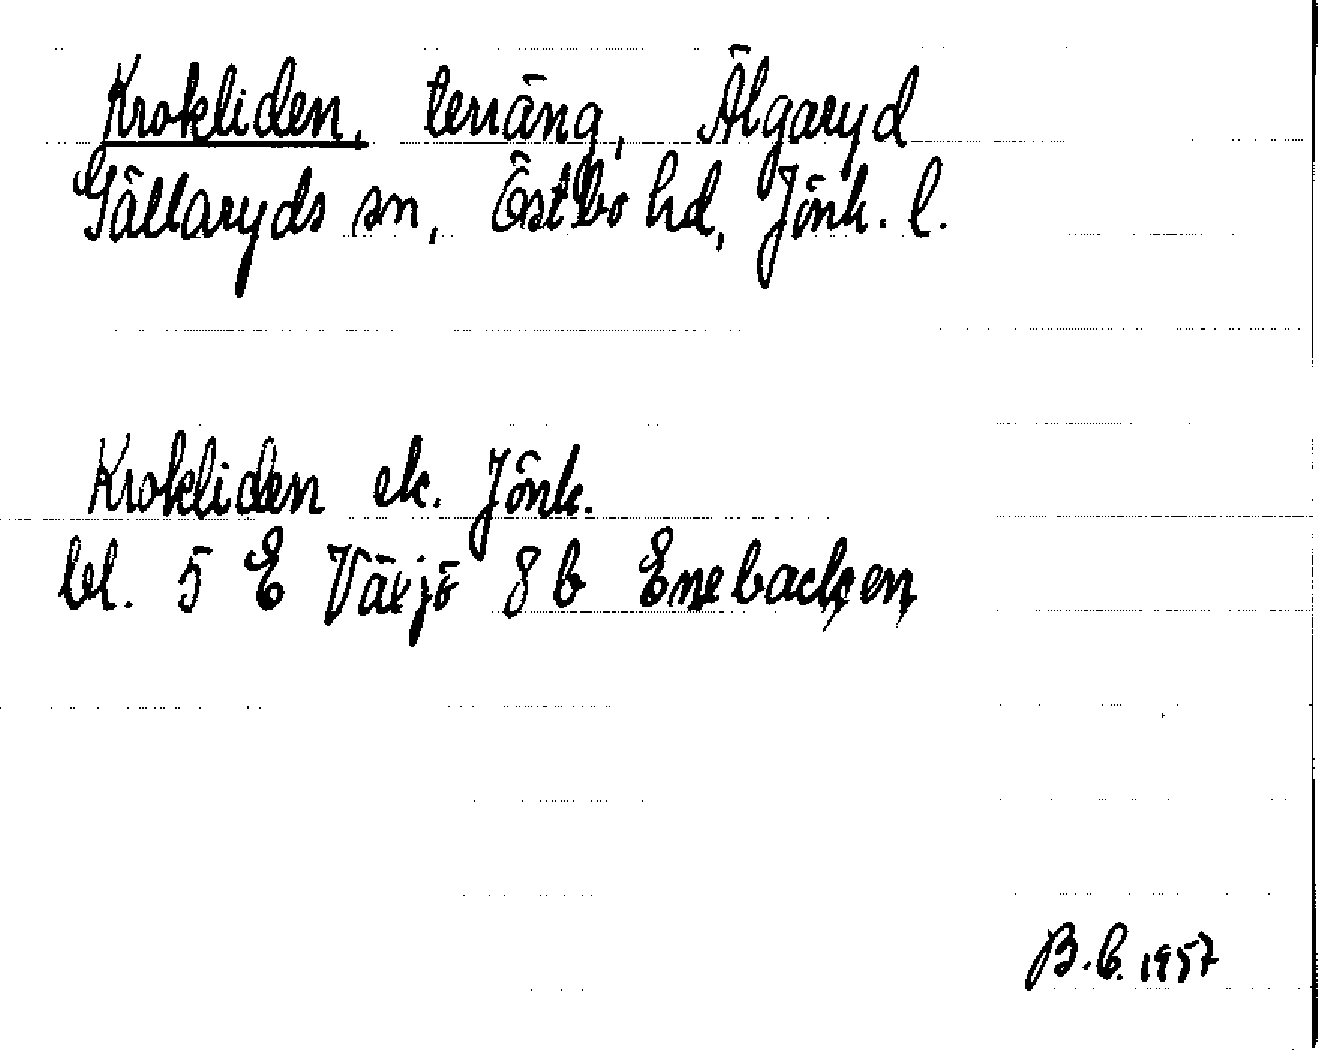 Krokliden, terräng, Älgaryd
Gällaryds sn, Östbo hd, Jönk. l.
Krokliden ek. Jönk.
bl. 5 E Växjö 8 b Enebacken
B.E. 1957